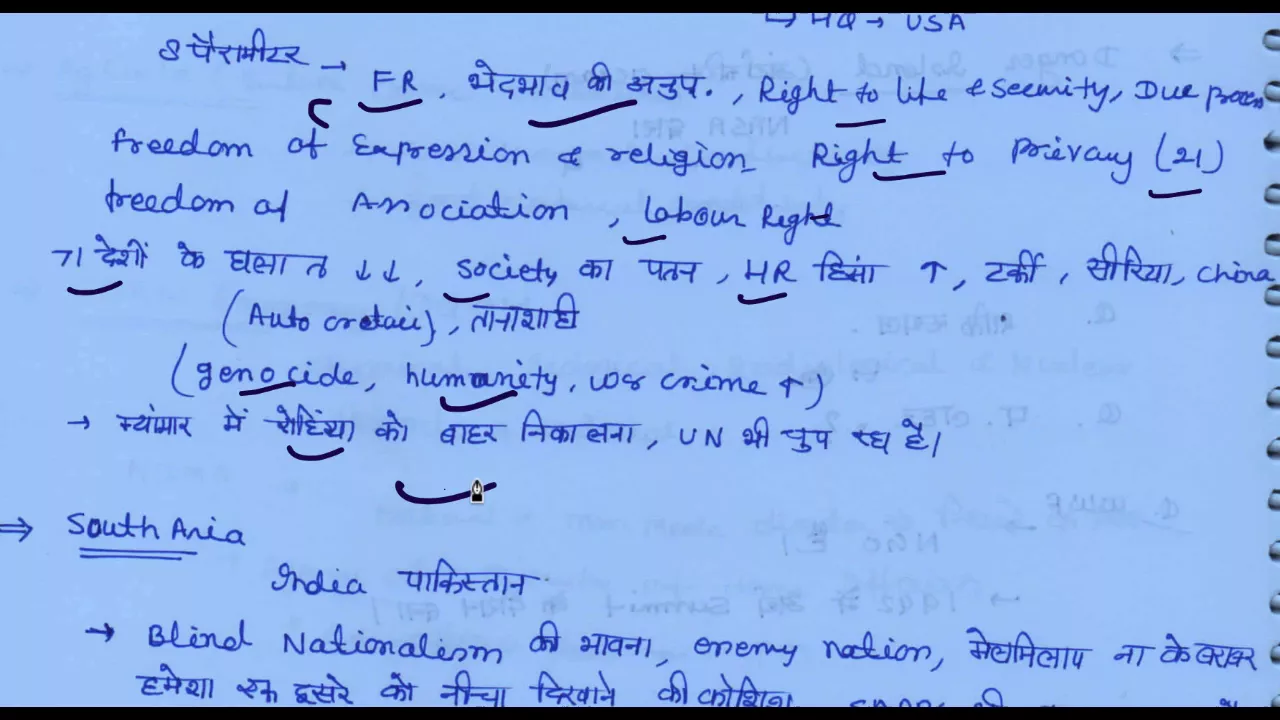 ↳ HQ → USA
8 पैरामीटर → FR, भेदभाव की अनुप., Right to life & Security, Due process
freedom of Expression & religion Right to Privacy (21)
freedom of Association, labour Right
71 देशों के ↓↓, Society का पतन, HR हिंसा ↑, टर्की, सीरिया, China
(Auto cratic), तानाशाही
(genocide, humanity, war crime ↑)
→ म्यांमार में रोहिंग्या को बाहर निकालना, UN भी चुप रहा है।
⇒ South Asia
India पाकिस्तान
→ Blind Nationalism की भावना, enemy nation, मेलमिलाप ना के बराबर
हमेशा एक दूसरे को नीचा दिखाने की कोशिश